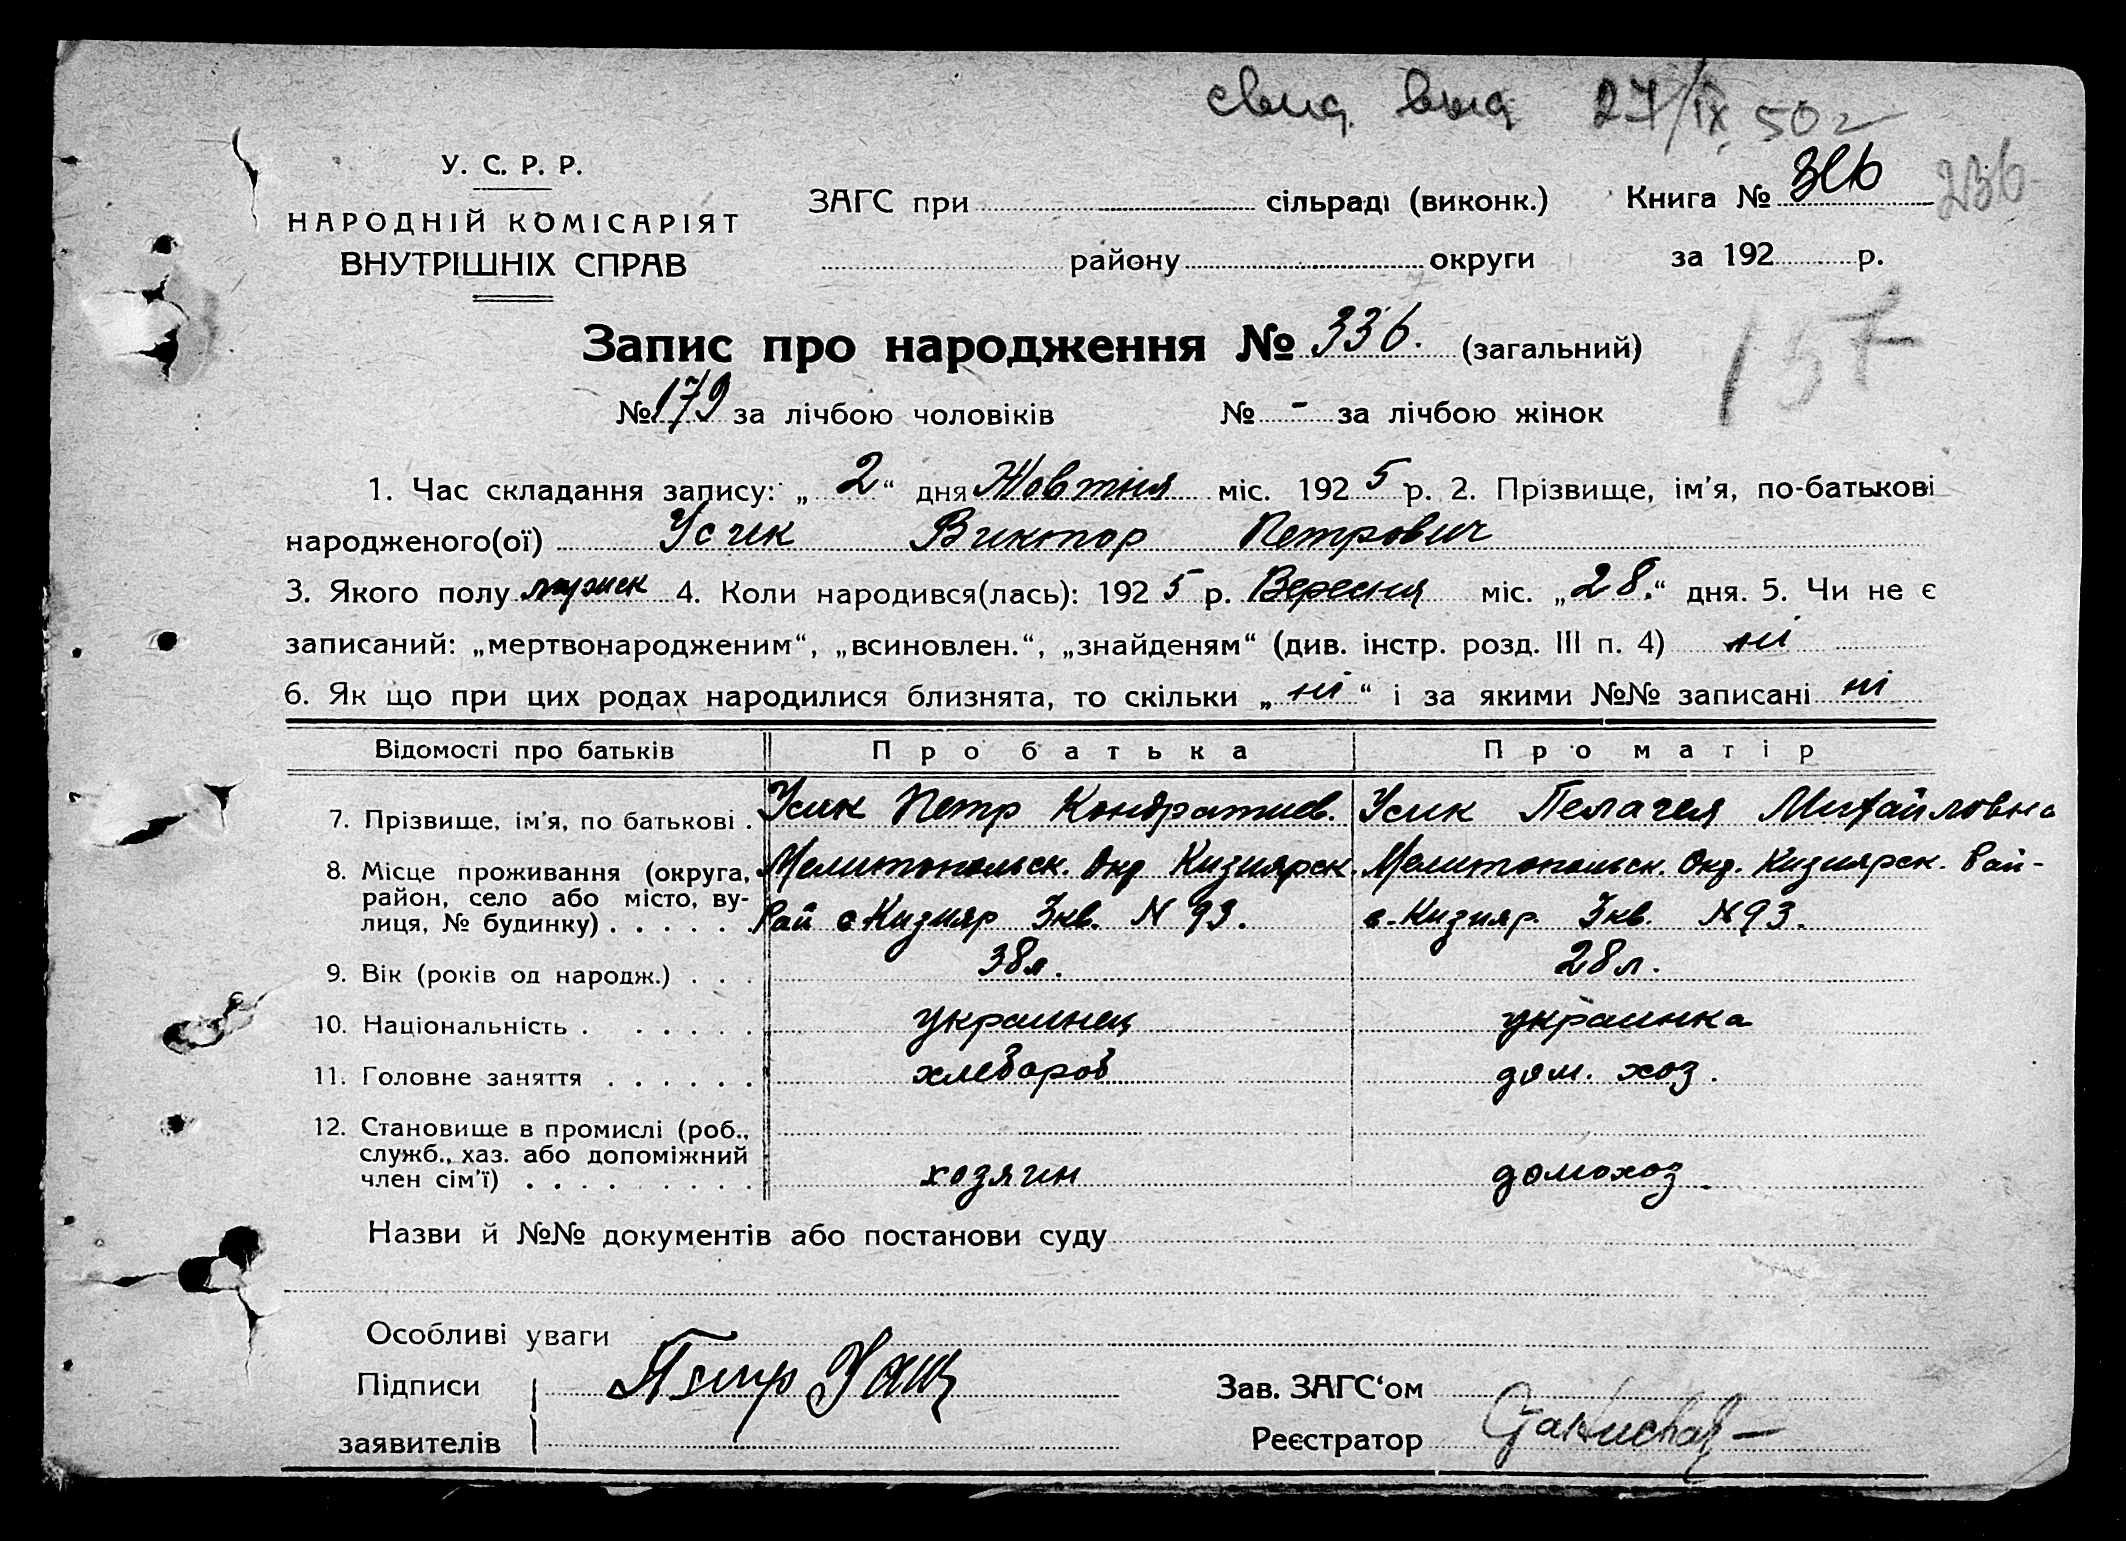 свид. выд. 27/IX 50 г
У. С. Р. Р.
НАРОДНІЙ КОМІСАРІЯТ
ВНУТРІШНІХ СПРАВ
ЗАГС при сільраді (виконк.) Книга № 236
району округи за 192 р.
Запис про народження № 336. (загальний)
157
№ 179 за лічбою чоловіків № - за лічбою жінок
1. Час складання запису: „2“ дня Жовтня міс. 1925 р. 2. Прізвище, ім'я, по-батькові
народженого(ої) Усик Виктор Петрович
3. Якого полу мужск 4. Коли народився(лась): 1925 р. Вересня міс. „28.“ дня. 5. Чи не є
записаний: „мертвонародженим“, „всиновлен.“, „знайденям“ (див. інстр. розд. III п. 4) ні
6. Як що при цих родах народилися близнята, то скільки „ні“ і за якими №№ записані ні
Відомості про батьків Про батька Про матір
7. Прізвище, ім'я, по батькові . Усик Петр Кондратиев. Усик Пелагея Михайловна
8. Місце проживання (округа, Мелитопольск. Окр Кизиярск. Мелитопольск. Окр. Кизиярск. Рай-
район, село або місто, ву-
лиця, № будинку) . . . . . . Рай с Кизияр 3кв. N 93. с. Кизияр. 3кв. N 93.
9. Вік (років од народж.) . . . 38л. 28л.
10. Національність . . . . . . украинец украинка
11. Головне заняття . . . . . . хлебороб дом. хоз.
12. Становище в промислі (роб.,
служб., хаз. або допоміжний
член сім'ї) . . . . . . . . . хозяин домохоз.
Назви й №№ документів або постанови суду
Особливі уваги
Підписи Зав. ЗАГС‘ом
заявителів Реєстратор